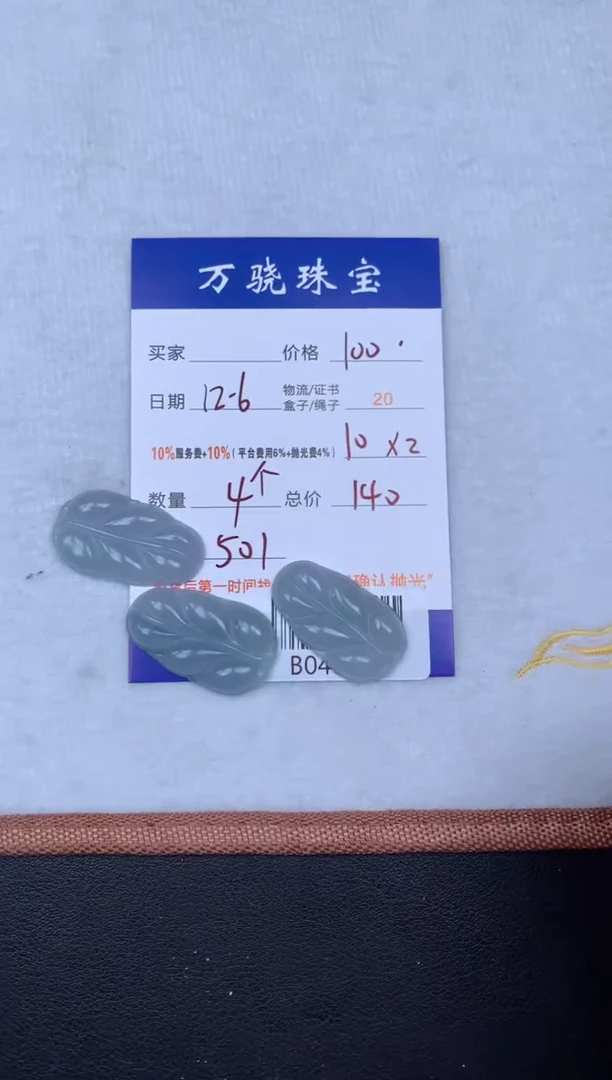 万骁珠宝
买家 价格 100
日期 12-6 物流/证书 盒子/绳子 20
10%服务费+10%(平台费用6%+抛光费4%) 10 x2
数量 4个 总价 140
501
后第一时间 确认抛光”
B04